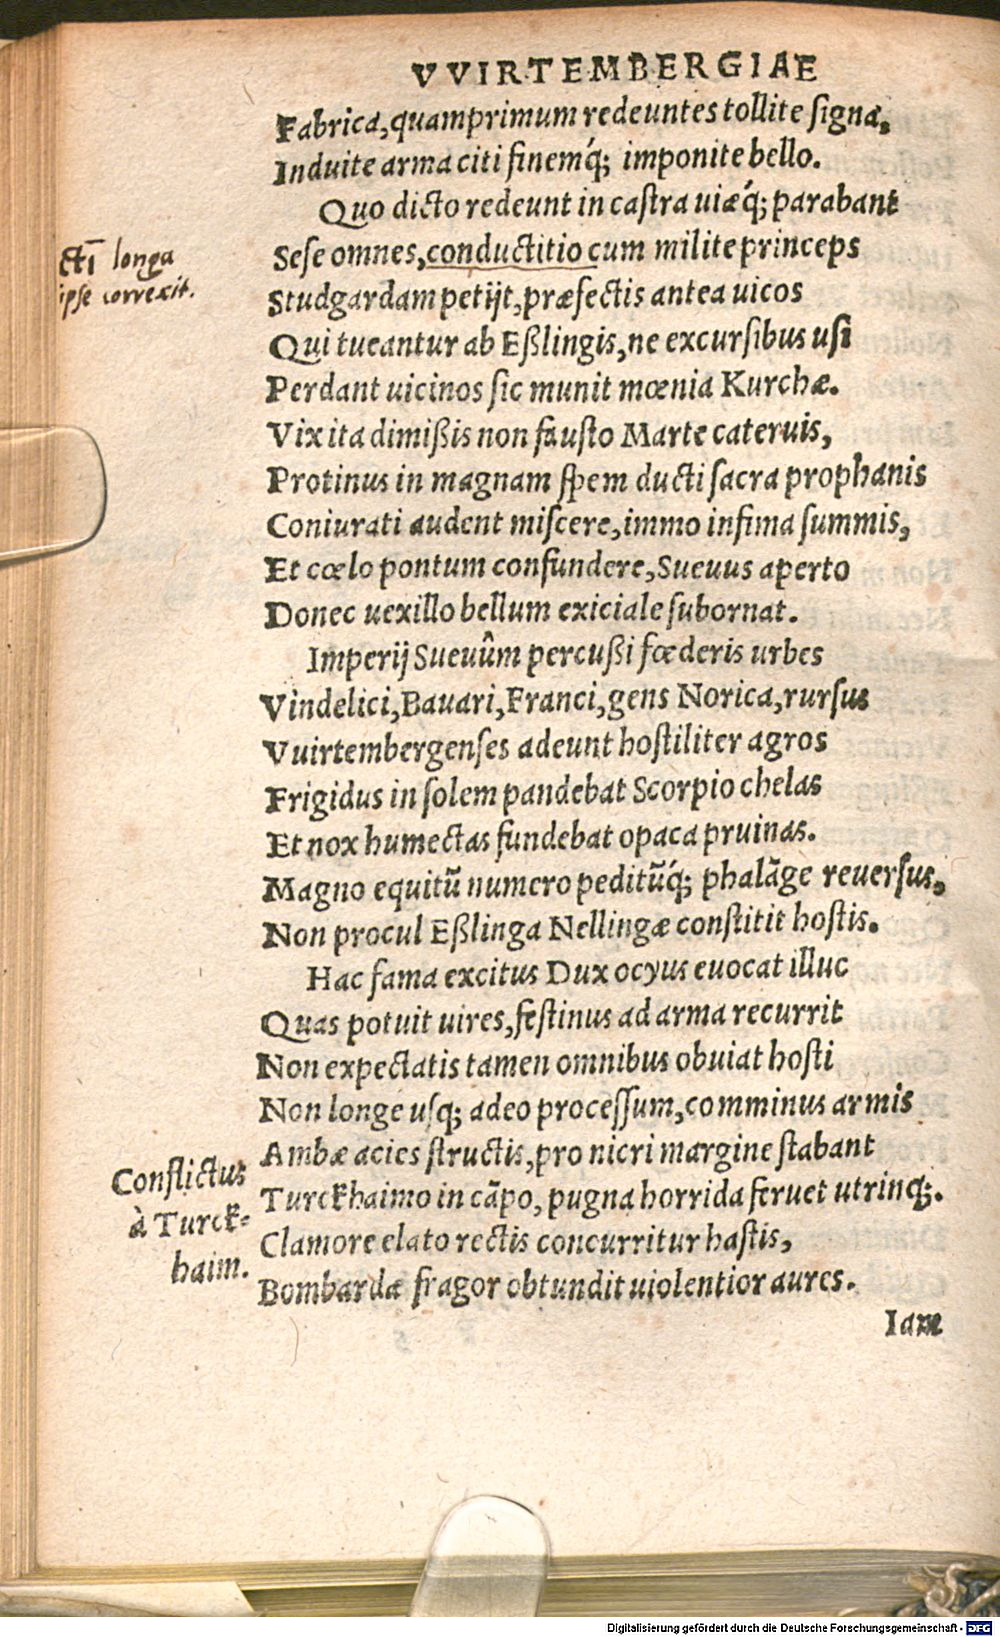 VVIRTEMBERGIAE
Fabrica, quamprimum redeuntes tollite signa,
Induite arma citi finemq́; imponite bello.
Quo dicto redeunt in castra uiæq́; parabant
Sese omnes, conductitio cum milite princeps
cti longa
ipse correxit.
Studgardam petijt, præfectis antea uicos
Qui tueantur ab Eßlingis, ne excursibus usi
Perdant uicinos sic munit mœnia Kurchæ.
Vix ita dimißis non fausto Marte cateruis,
Protinus in magnam spem ducti sacra prophanis
Coniurati audent miscere, immo infima summis,
Et cœlo pontum confundere, Sueuus aperto
Donec uexillo bellum exiciale subornat.
Imperij Sueuûm percußi fœderis urbes
Vindelici, Bauari, Franci, gens Norica, rursus
Vuirtembergenses adeunt hostiliter agros
Frigidus in solem pandebat Scorpio chelas
Et nox humectas fundebat opaca pruinas.
Magno equitũ numero peditũq́; phalãge reuersus,
Non procul Eßlinga Nellingæ constitit hostis.
Hac fama excitus Dux ocyus euocat illuc
Quas potuit uires, festinus ad arma recurrit
Non expectatis tamen omnibus obuiat hosti
Non longe usq; adeo processum, comminus armis
Ambæ acies structis, pro nicri margine stabant
Turckhaimo in cãpo, pugna horrida feruet utrinq;.
Clamore elato rectis concurritur hastis,
Bombardæ fragor obtundit uiolentior aures.
Conflictus
à Turck-
haim.
Iam
Digitalisierung gefördert durch die Deutsche Forschungsgemeinschaft - DFG